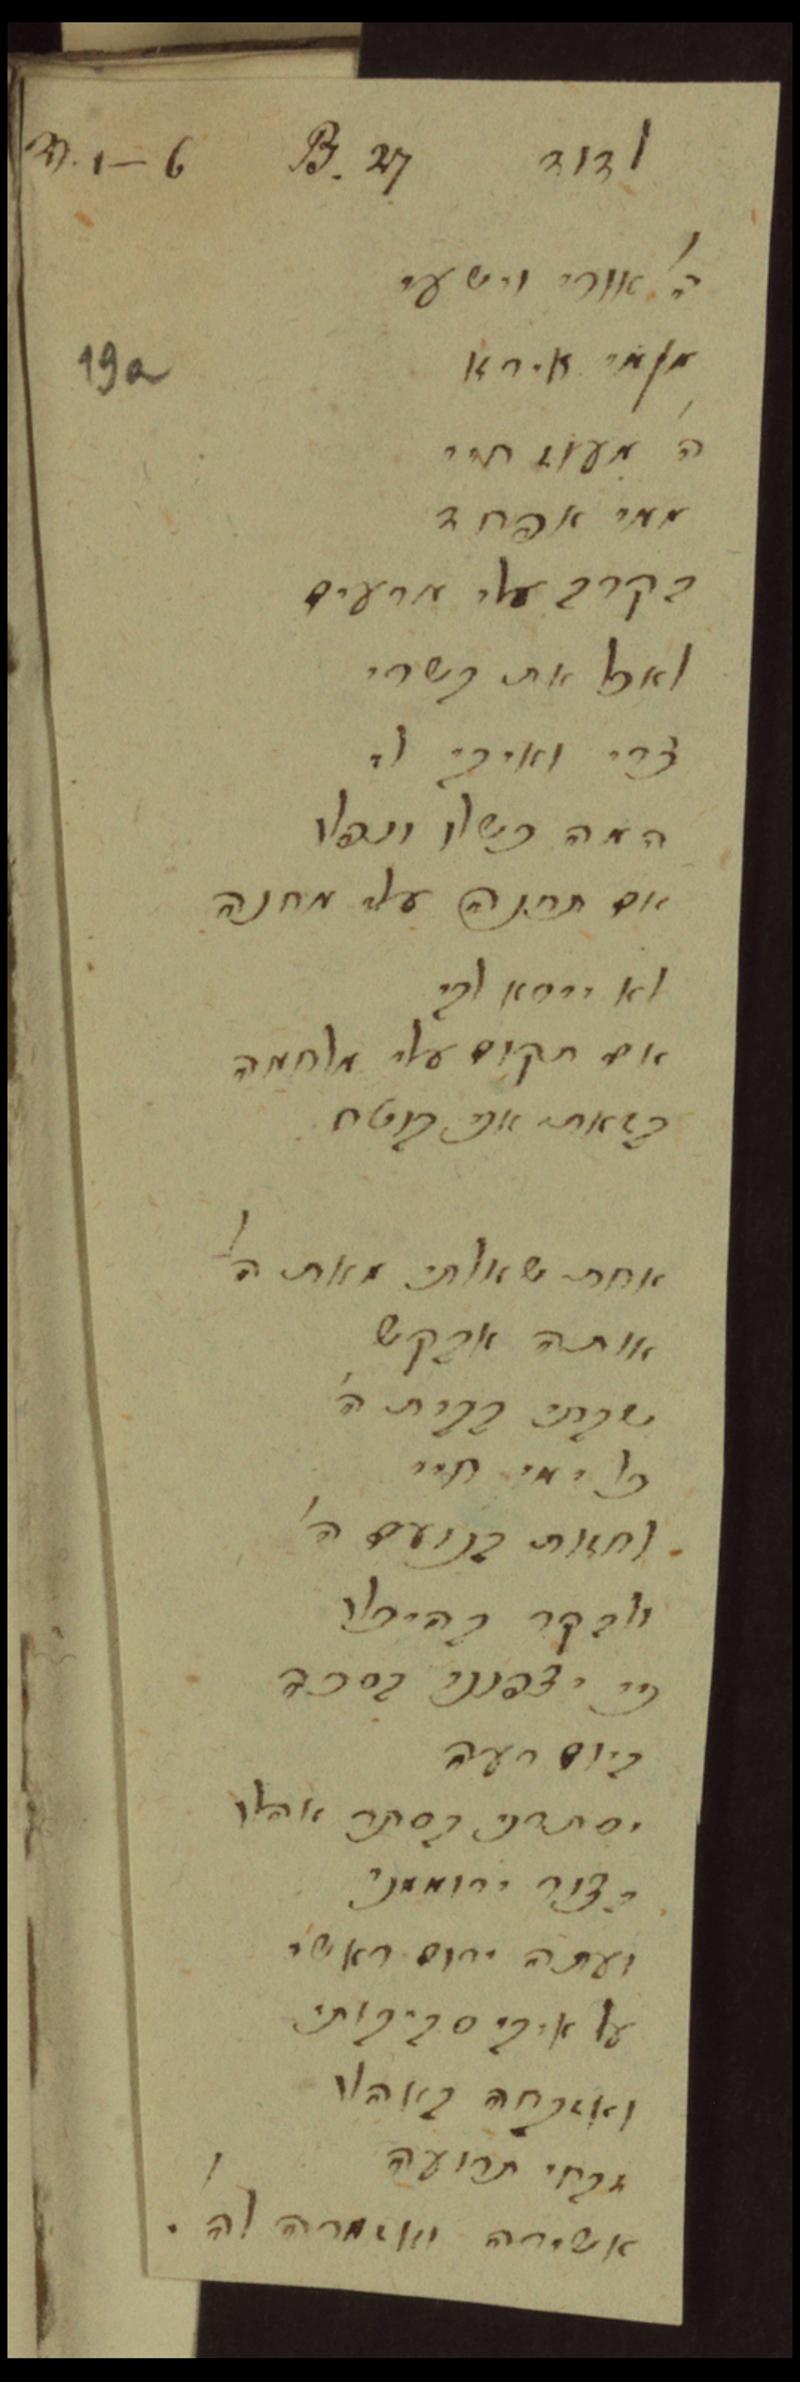 לדוד B. 27 V. 1–6
ה' אורי וישעי
ממי אירא
19a
ה' מעוז חיי
ממי אפחד
בקרב עלי מרעים
לאכל את בשרי
צרי ואיבי לי
המה כשלו ונפלו
אם תחנה עלי מחנה
לא יירא לבי
אם תקום עלי מלחמה
בזאת אני בוטח
אחת שאלתי מאת ה'
אותה אבקש
שבתי בבית ה'
כל ימי חיי
לחזות בנועם ה'
ולבקר בהיכלו
כי יצפנני בסכה
ביום רעה
יסתרני בסתר אהלו
בצור ירוממני
ועתה ירום ראשי
על איבי סביבותי
ואזבחה באהלו
זבחי תרועה
אשירה ואזמרה לה'.